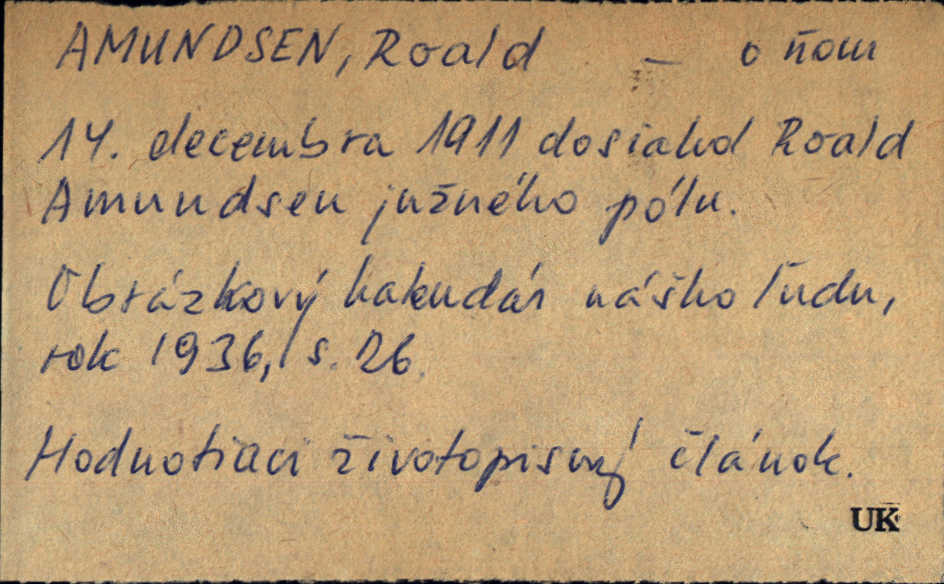 AMUNDSEN, Roald – o ňom
14. decembra 1911 dosiahol Roald
Amundsen južného pólu.
Obrázkový kalendár nášho ľudu,
rok 1936, s. 26.
Hodnotiaci životopisný článok.
UK